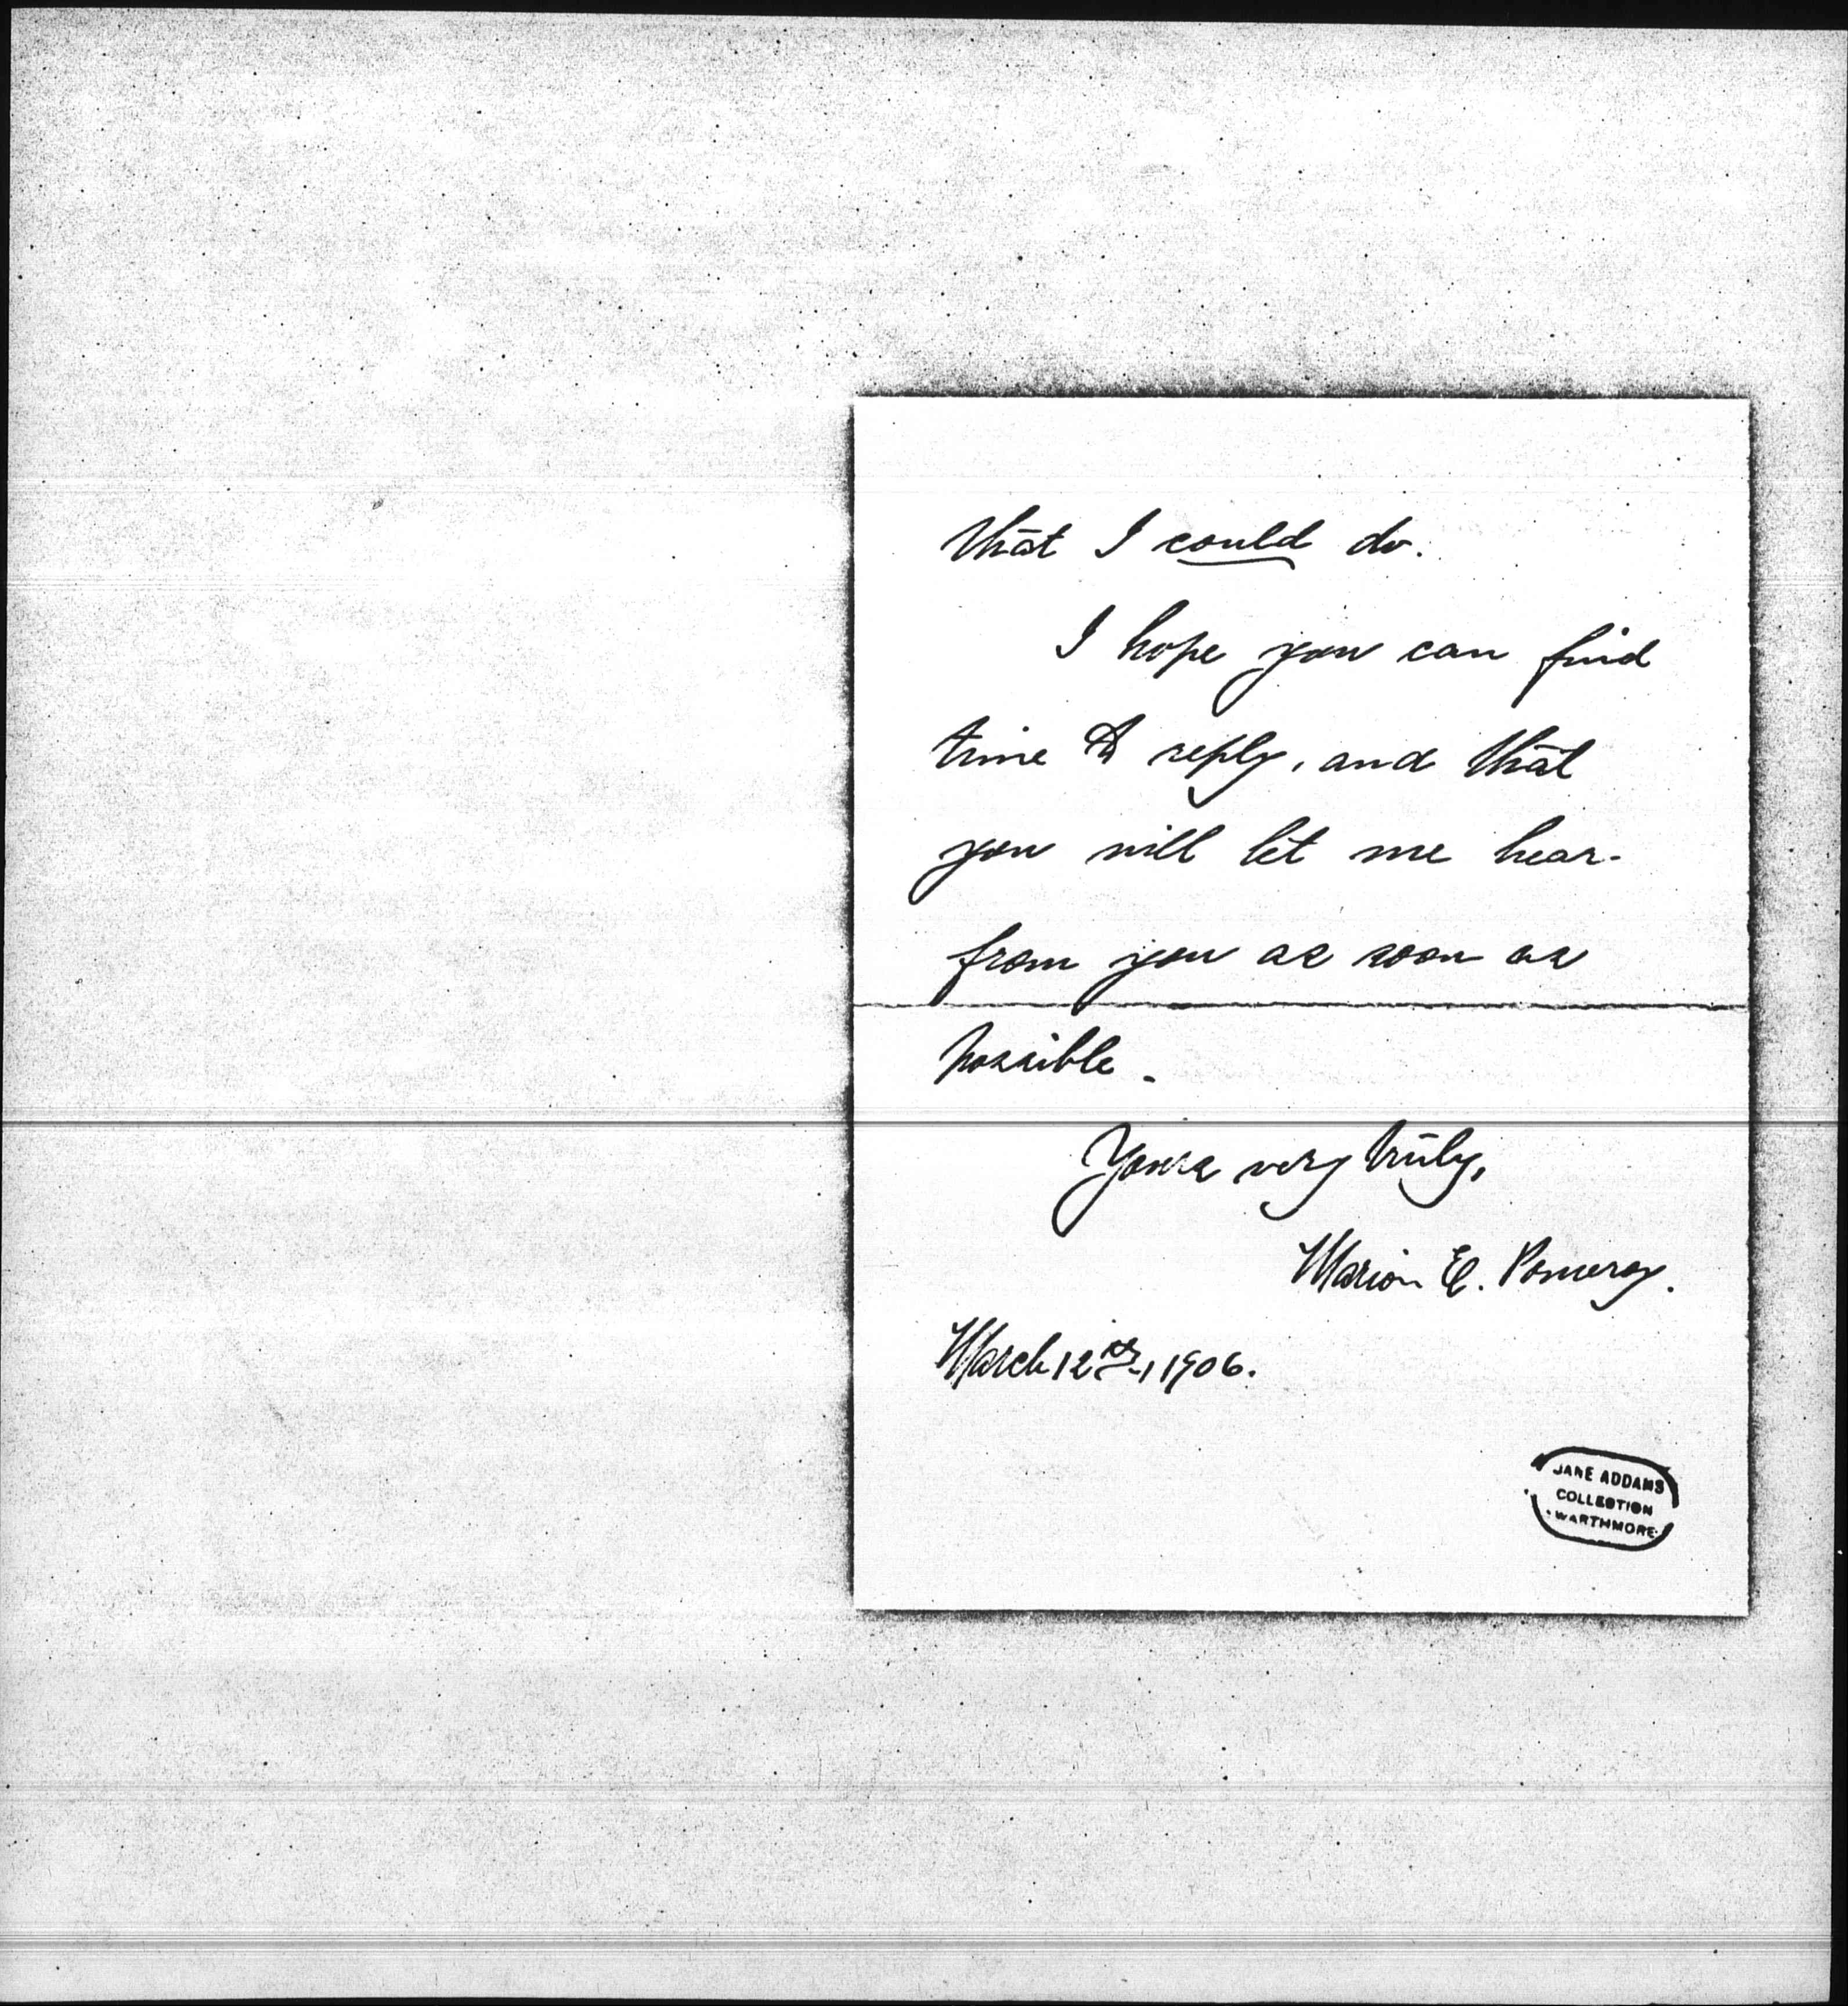 that I could do.
I hope you can find
time to reply, and that
you will let me hear
from you as soon as
possible.
Yours very truly,
Marion E. Pomeroy.
March 12th, 1906.
JANE ADDAMS
COLLECTION
WARTHMORE